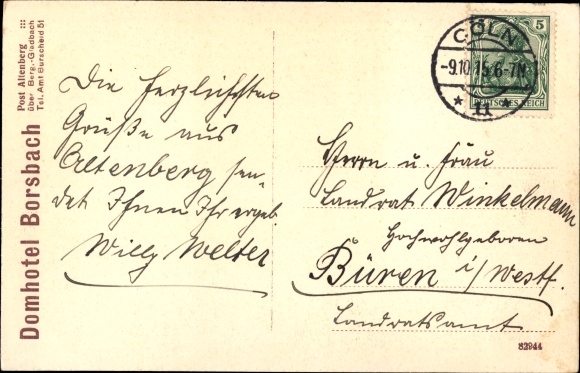 Domhotel Borsbach
Post Altenberg
über Berg.-Gladbach
Tel. Amt Burscheid 51
Die herzlichsten
Grüße aus
Altenberg sen-
det Ihnen Ihr ergeb.
Willy Welter
CÖLN
-9.10.15.6-7N
* 11 *
5
DEUTSCHES REICH
Herrn u. Frau
Landrat Winkelmann
Hochwohlgeboren
Büren i/Westf.
Landratsamt
82944